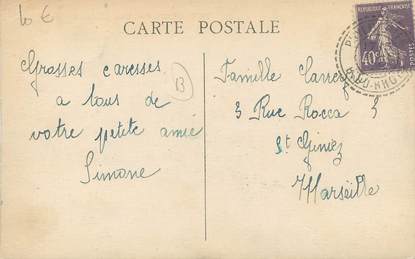 10 €
CARTE POSTALE
REPUBLIQUE FRANÇAISE
40c
POSTES
Grosses caresses
a tous de
votre petite amie
Simone
13
Famille Carrey
3 Rue Rocca 3
St Giniez
Marseille